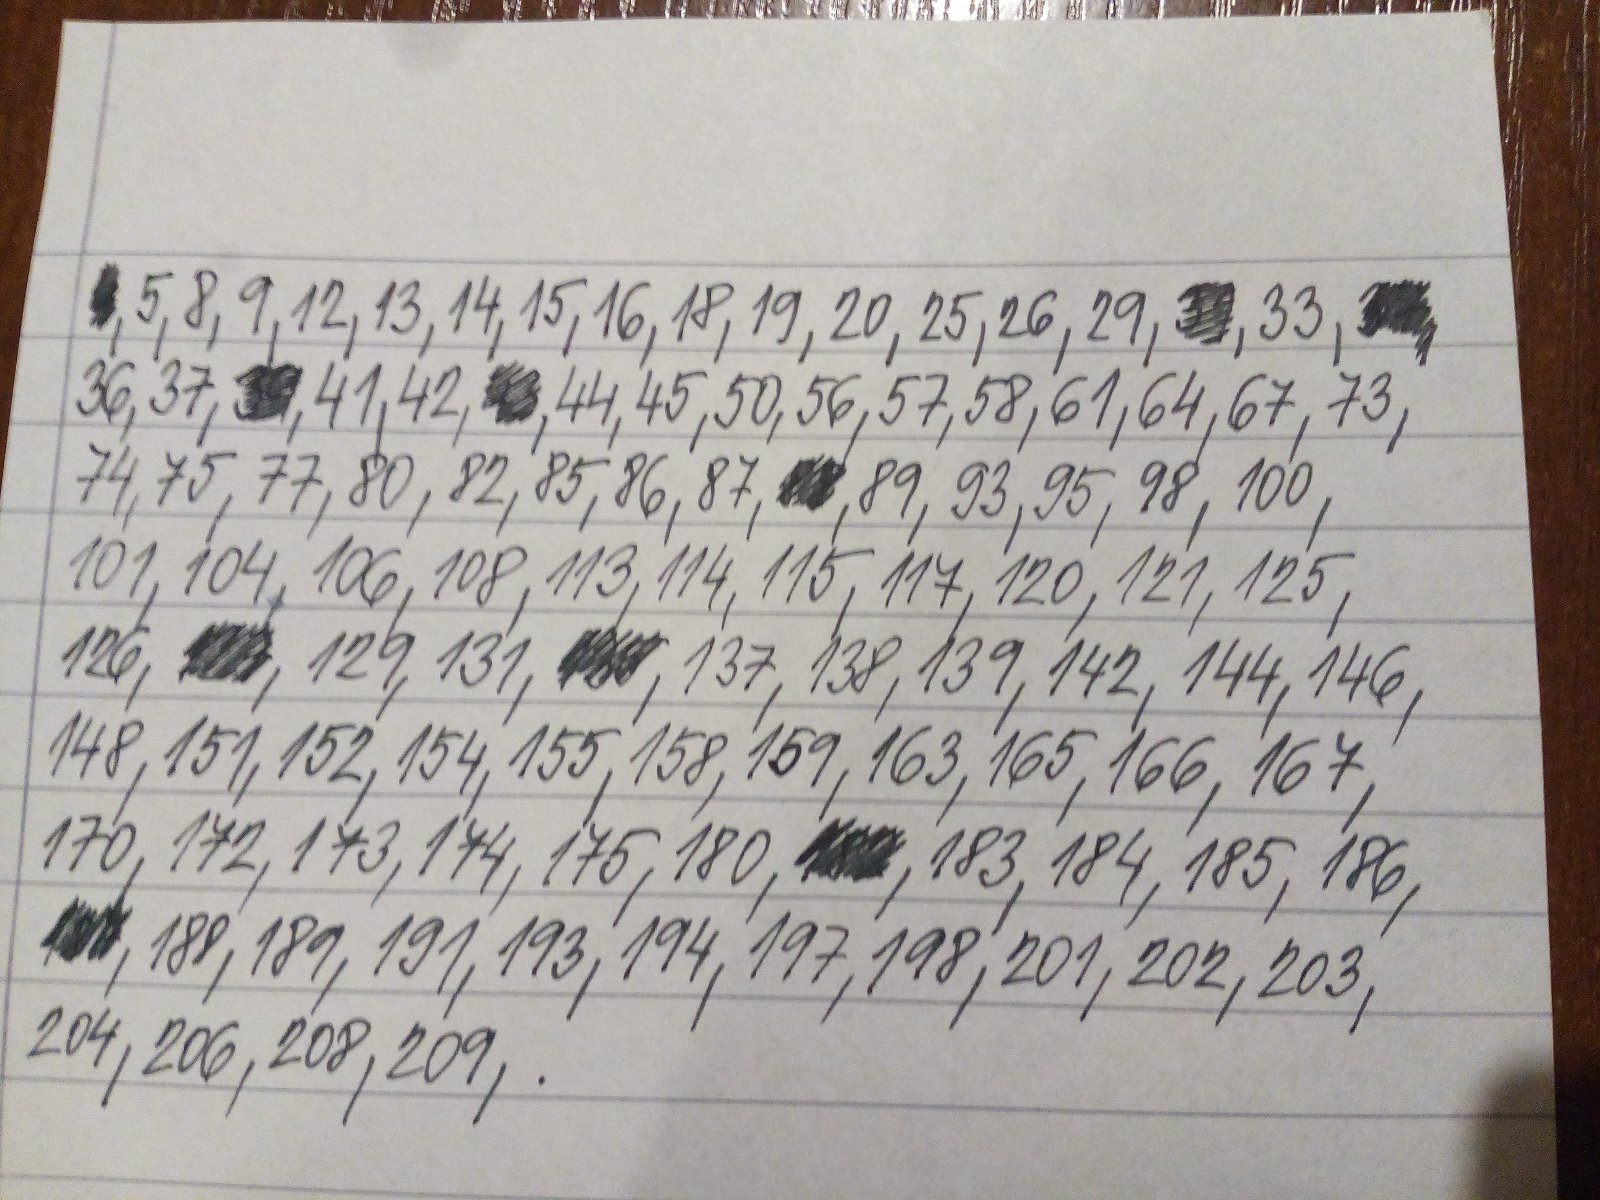 , 5, 8, 9, 12, 13, 14, 15, 16, 18, 19, 20, 25, 26, 29, , 33, ,
36, 37, , 41, 42, , 44, 45, 50, 56, 57, 58, 61, 64, 67, 73,
74, 75, 77, 80, 82, 85, 86, 87, , 89, 93, 95, 98, 100,
101, 104, 106, 108, 113, 114, 115, 117, 120, 121, 125,
126, , 129, 131, , 137, 138, 139, 142, 144, 146,
148, 151, 152, 154, 155, 158, 159, 163, 165, 166, 167,
170, 172, 173, 174, 175, 180, , 183, 184, 185, 186,
, 188, 189, 191, 193, 194, 197, 198, 201, 202, 203,
204, 206, 208, 209, .